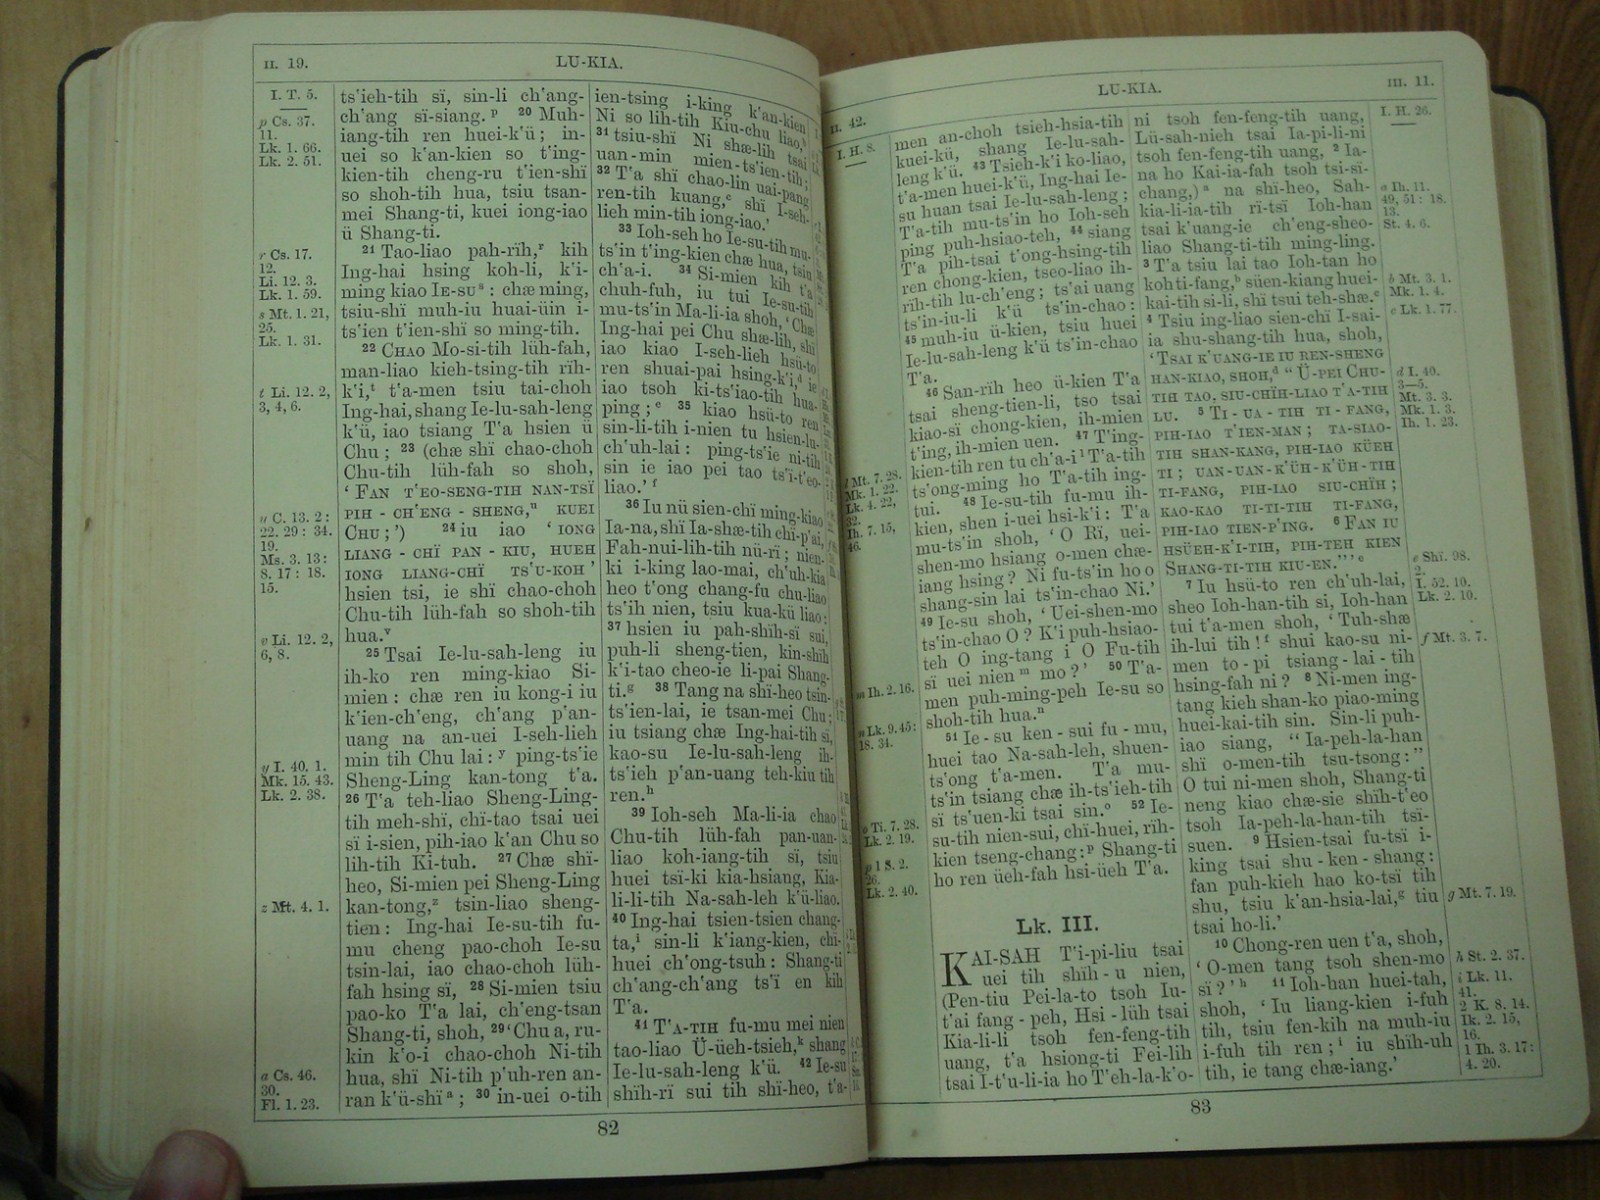 II. 19.
LU-KIA.
I. T. 5.
p Cs. 37.
11.
Lk. 1. 66.
Lk. 2. 51.
r Cs. 17.
12.
Li. 12. 3.
Lk. 1. 59.
s Mt. 1. 21,
25.
Lk. 1. 31.
t Li. 12. 2,
3, 4, 6.
u C. 13. 2:
22. 29: 34.
19.
Ms. 3. 13:
8. 17: 18.
15.
v Li. 12. 2,
6, 8.
y I. 40. 1.
Mk. 15. 43.
Lk. 2. 38.
z Mt. 4. 1.
a Cs. 46.
30.
Fl. 1. 23.
ts'ieh-tih sï, sin-li ch'ang-
ch'ang sï-siang. p 20 Muh-
iang-tih ren huei-k'ü; in-
uei so k'an-kien so t'ing-
kien-tih cheng-ru t'ien-shï
so shoh-tih hua, tsiu tsan-
mei Shang-ti, kuei iong-iao
ü Shang-ti.
21 Tao-liao pah-rïh, r kih
Ing-hai hsing koh-li, k'i-
ming kiao IE-SU s : chæ ming,
tsiu-shï muh-iu huai-üin i-
ts'ien t'ien-shï so ming-tih.
22 CHAO Mo-si-tih lüh-fah,
man-liao kieh-tsing-tih rïh-
k'i, t t'a-men tsiu tai-choh
Ing-hai, shang Ie-lu-sah-leng
k'ü, iao tsiang T'a hsien ü
Chu; 23 (chæ shï chao-choh
Chu-tih lüh-fah so shoh,
'FAN T'EO-SENG-TIH NAN-TSÏ
PIH-CH'ENG-SHENG, u KUEI
CHU;') 24 iu iao 'IONG
LIANG-CHÏ PAN-KIU, HUEH
IONG LIANG-CHÏ TS'U-KOH'
hsien tsi, ie shï chao-choh
Chu-tih lüh-fah so shoh-tih
hua. v
25 Tsai Ie-lu-sah-leng iu
ih-ko ren ming-kiao Si-
mien: chæ ren iu kong-i iu
k'ien-ch'eng, ch'ang p'an-
uang na an-uei I-seh-lieh
min tih Chu lai: y ping-ts'ie
Sheng-Ling kan-tong t'a.
26 T'a teh-liao Sheng-Ling-
tih meh-shï, chï-tao tsai uei
sï i-sien, pih-iao k'an Chu so
lih-tih Ki-tuh. 27 Chæ shï-
heo, Si-mien pei Sheng-Ling
kan-tong, z tsin-liao sheng-
tien: Ing-hai Ie-su-tih fu-
mu cheng pao-choh Ie-su
tsin-lai, iao chao-choh lüh-
fah hsing sï, 28 Si-mien tsiu
pao-ko T'a lai, ch'eng-tsan
Shang-ti, shoh, 29 'Chu a, ru-
kin k'o-i chao-choh Ni-tih
hua, shï Ni-tih p'uh-ren an-
ran k'ü-shï a ; 30 in-uei o-tih
ien-tsing i-king k'an-kien
Ni so lih-tih Kiu-chu liao,
31 tsiu-shï Ni shæ-lih tsai
uan-min mien-ts'ien-tih;
32 T'a shï chao-lin uai-pang
ren-tih kuang, c shï I-seh-
lieh min-tih iong-iao.'
33 Ioh-seh ho Ie-su-tih mu-
ts'in t'ing-kien chæ hua, tsiu
ch'a-i. 34 Si-mien kih t'a
chuh-fuh, iu tui Ie-su-tih
mu-ts'in Ma-li-ia shoh, 'Chæ
Ing-hai pei Chu shæ-lih, shï
iao kiao I-seh-lieh hsü-to
ren shuai-pai hsing-k'i, d ie
iao tsoh ki-ts'iao-tih hua-
ping; e 35 kiao hsü-to ren
sin-li-tih i-nien tu hsien-lu-
ch'uh-lai: ping-ts'ie ni-tih
sin ie iao pei tao ts'ï-t'eo-
liao.' f
36 Iu nü sien-chï ming-kiao
Ia-na, shï Ia-shæ-tih chï-p'ai,
Fah-nui-lih-tih nü-rï; nien-
ki i-king lao-mai, ch'uh-kia
heo t'ong chang-fu chu-liao
ts'ih nien, tsiu kua-kü liao:
37 hsien iu pah-shïh-sï sui,
puh-li sheng-tien, kin-shïh
k'i-tao cheo-ie li-pai Shang-
ti. g 38 Tang na shï-heo tsin-
ts'ien-lai, ie tsan-mei Chu;
iu tsiang chæ Ing-hai-tih sï,
kao-su Ie-lu-sah-leng ih-
ts'ieh p'an-uang teh-kiu tih
ren. h
39 Ioh-seh Ma-li-ia chao
Chu-tih lüh-fah pan-uan-
liao koh-iang-tih sï, tsiu
huei tsï-ki kia-hsiang, Kia-
li-li-tih Na-sah-leh k'ü-liao.
40 Ing-hai tsien-tsien chang-
ta, i sin-li k'iang-kien, chï-
huei ch'ong-tsuh: Shang-ti
ch'ang-ch'ang ts'ï en kih
T'a.
41 T'A-TIH fu-mu mei nien
tao-liao Ü-üeh-tsieh, k shang
Ie-lu-sah-leng k'ü. 42 Ie-su
shïh-rï sui tih shï-heo, t'a-
82
II. 42.
LU-KIA.
III. 11.
I. H. 8.
l Mt. 7. 28.
Mk. 1. 22.
Lk. 4. 22,
32.
Ih. 7. 15,
46.
m Ih. 2. 16.
n Lk. 9. 45:
18. 34.
o Ti. 7. 28.
Lk. 2. 19.
p 1 S. 2.
26.
Lk. 2. 40.
men an-choh tsieh-hsia-tih
kuei-kü, shang Ie-lu-sah-
leng k'ü. 43 Tsieh-k'i ko-liao,
t'a-men huei-k'ü, Ing-hai Ie-
su huan tsai Ie-lu-sah-leng;
T'a-tih mu-ts'in ho Ioh-seh
ping puh-hsiao-teh, 44 siang
T'a pih-tsai t'ong-hsing-tih
ren chong-kien, tseo-liao ih-
rïh-tih lu-ch'eng; ts'ai uang
ts'in-iu-li k'ü ts'in-chao:
45 muh-iu ü-kien, tsiu huei
Ie-lu-sah-leng k'ü ts'in-chao
T'a.
46 San-rïh heo ü-kien T'a
tsai sheng-tien-li, tso tsai
kiao-sï chong-kien, ih-mien
t'ing, ih-mien uen. 47 T'ing-
kien-tih ren tu ch'a-i l T'a-tih
ts'ong-ming ho T'a-tih ing-
tui. 48 Ie-su-tih fu-mu ih-
kien, shen i-uei hsi-k'i: T'a
mu-ts'in shoh, 'O Rï, uei-
shen-mo hsiang o-men chæ-
iang hsing? Ni fu-ts'in ho o
shang-sin lai ts'in-chao Ni.'
49 Ie-su shoh, 'Uei-shen-mo
ts'in-chao O? K'i puh-hsiao-
teh O ing-tang i O Fu-tih
sï uei nien m mo?' 50 T'a-
men puh-ming-peh Ie-su so
shoh-tih hua. n
51 Ie-su ken-sui fu-mu,
huei tao Na-sah-leh, shuen-
ts'ong t'a-men. T'a mu-
ts'in tsiang chæ ih-ts'ieh-tih
sï ts'uen-ki tsai sin. o 52 Ie-
su-tih nien-sui, chï-huei, rïh-
kien tseng-chang: p Shang-ti
ho ren üeh-fah hsi-üeh T'a.
Lk. III.
KAI-SAH T'i-pi-liu tsai
uei tih shïh-u nien,
(Pen-tiu Pei-la-to tsoh Iu-
t'ai fang-peh, Hsi-lüh tsai
Kia-li-li tsoh fen-feng-tih
uang, t'a hsiong-ti Fei-lih
tsai I-t'u-li-ia ho T'eh-la-k'o-
ni tsoh fen-feng-tih uang,
Lü-sah-nieh tsai Ia-pi-li-ni
tsoh fen-feng-tih uang, 2 Ia-
na ho Kai-ia-fah tsoh tsi-sï-
chang,) a na shï-heo, Sah-
kia-li-ia-tih rï-tsï Ioh-han
tsai k'uang-ie ch'eng-sheo-
liao Shang-ti-tih ming-ling.
3 T'a tsiu lai tao Ioh-tan ho
koh ti-fang, b süen-kiang huei-
kai-tih si-li, shï tsui teh-shæ. c
4 Tsiu ing-liao sien-chï I-sai-
ia shu-shang-tih hua, shoh,
'TSAI K'UANG-IE IU REN-SHENG
HAN-KIAO, SHOH, d "Ü-PEI CHU-
TIH TAO, SIU-CHÏH-LIAO T'A-TIH
LU. 5 TI-UA-TIH TI-FANG,
PIH-IAO T'IEN-MAN; TA-SIAO-
TIH SHAN-KANG, PIH-IAO KÜEH
TI; UAN-UAN-K'ÜH-K'ÜH-TIH
TI-FANG, PIH-IAO SIU-CHÏH;
KAO-KAO TI-TI-TIH TI-FANG,
PIH-IAO TIEN-P'ING. 6 FAN IU
HSÜEH-K'I-TIH, PIH-TEH KIEN
SHANG-TI-TIH KIU-EN."' e
7 Iu hsü-to ren ch'uh-lai,
sheo Ioh-han-tih si, Ioh-han
tui t'a-men shoh, 'Tuh-shæ
ih-lui tih! f shui kao-su ni-
men to-pi tsiang-lai-tih
hsing-fah ni? 8 Ni-men ing-
tang kieh shan-ko piao-ming
huei-kai-tih sin. Sin-li puh-
iao siang, "Ia-peh-la-han
shï o-men-tih tsu-tsong:"
O tui ni-men shoh, Shang-ti
neng kiao chæ-sie shïh-t'eo
tsoh Ia-peh-la-han-tih tsï-
suen. 9 Hsien-tsai fu-tsï i-
king tsai shu-ken-shang:
fan puh-kieh hao ko-tsï tih
shu, tsiu k'an-hsia-lai, g tiu
tsai ho-li.'
10 Chong-ren uen t'a, shoh,
'O-men tang tsoh shen-mo
sï?' h 11 Ioh-han huei-tah,
shoh, 'Iu liang-kien i-fuh
tih, tsiu fen-kih na muh-iu
i-fuh tih ren; i iu shïh-uh
tih, ie tang chæ-iang.'
I. H. 26.
a Ih. 11.
49, 51: 18.
13.
St. 4. 6.
b Mt. 3. 1.
Mk. 1. 4.
c Lk. 1. 77.
d I. 40.
3—5.
Mt. 3. 3.
Mk. 1. 3.
Ih. 1. 23.
e Shï. 98.
2.
I. 52. 10.
Lk. 2. 10.
f Mt. 3. 7.
g Mt. 7. 19.
h St. 2. 37.
i Lk. 11.
41.
2 K. 8. 14.
Ik. 2. 15,
16.
1 Ih. 3. 17:
4. 20.
83